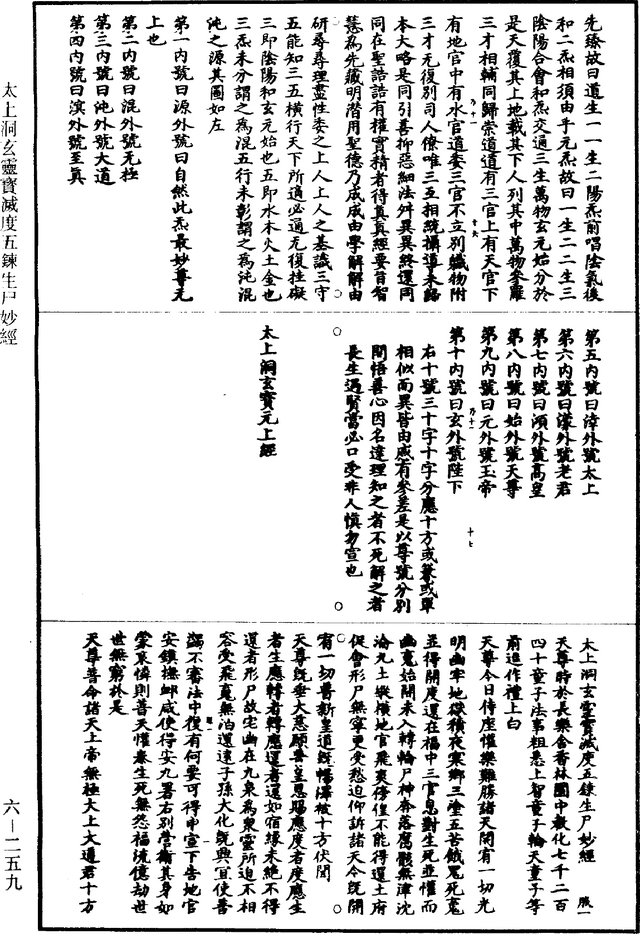 先臻故曰道生一一生二陽炁前唱陰氣後
和二炁相須由乎元炁故曰一生二二生三
陰陽合會和炁交通三生萬物玄元始分於
是天覆其上地載其下人列其中萬物參羅
三才相輔同歸崇道道有三官上有天官下
有地官中有水官道委三官不立別職物附
三才无復別司人僚唯三互相統攝導末歸
本大略是同引善抑惡細法舛異異終還同
同在聖誥誥有權實精者得真真經要旨智
慧為先藏明潛用聖德乃成成由學解解由
研尋尋理盡性委之上人上人之基識三守
五能知三五橫行天下所適必通无復挂礙
三即陰陽和玄元始也五即水木火土金也
三炁未分謂之為混五行未彰謂之為沌混
沌之源其圖如左
第一內號曰源外號曰自然此炁最妙尊元
上也
第二內號曰混外號无極
第三內號曰沌外號大道
第四內號曰濱外號至真
第五內號曰漳外號太上
第六內號曰濛外號老君
第七內號曰澒外號高皇
第八內號曰始外號天尊
第九內號曰元外號玉帝
第十內號曰玄外號陛下
右十號三十字十字分應十方或兼或單
相似而異皆由感有參差是以尊號分別
開悟善心因名達理知之者不死解之者
長生遇賢當必口受非人慎勿宣也
太上洞玄寶元上經
太上洞玄靈寶滅度五鍊生尸妙經
天尊時於長樂舍香林園中教化七千二百
四十童子法事粗悉上智童子輪天童子等
前進作禮上白
天尊今日侍座懽樂難勝諸天開宥一切光
明幽牢地獄積夜寒鄉三塗五苦餓鬼死魂
並得開度還在福中三官息對生死並懽而
幽魂始開未入轉輪尸神奔落傷骸無津沈
淪九土縱橫地官飛爽停惶不能得還土府
促會形尸無寧更受愁迫仰訴諸天今既開
宥一切普新皇道既暢澤被十方伏聞
天尊既垂大慈願垂皇恩賜應度者度應生
者生應轉者轉應還者還如宿緣未絕不得
還者形尸故宅幽在九泉為眾靈所迫不相
容受飛魂無泊還逮子孫大化既興宜使普
蠲不審法中復有何要可得申宣下告地官
安鎮撫卹咸使得安九署右別營衛其身如
蒙哀憐則普天懽泰生死無怨福流億劫世
世無窮於是
天尊普命諸天上帝無極大上大道君十方
太上洞玄靈寶滅度五鍊生尸妙經
六－二五九